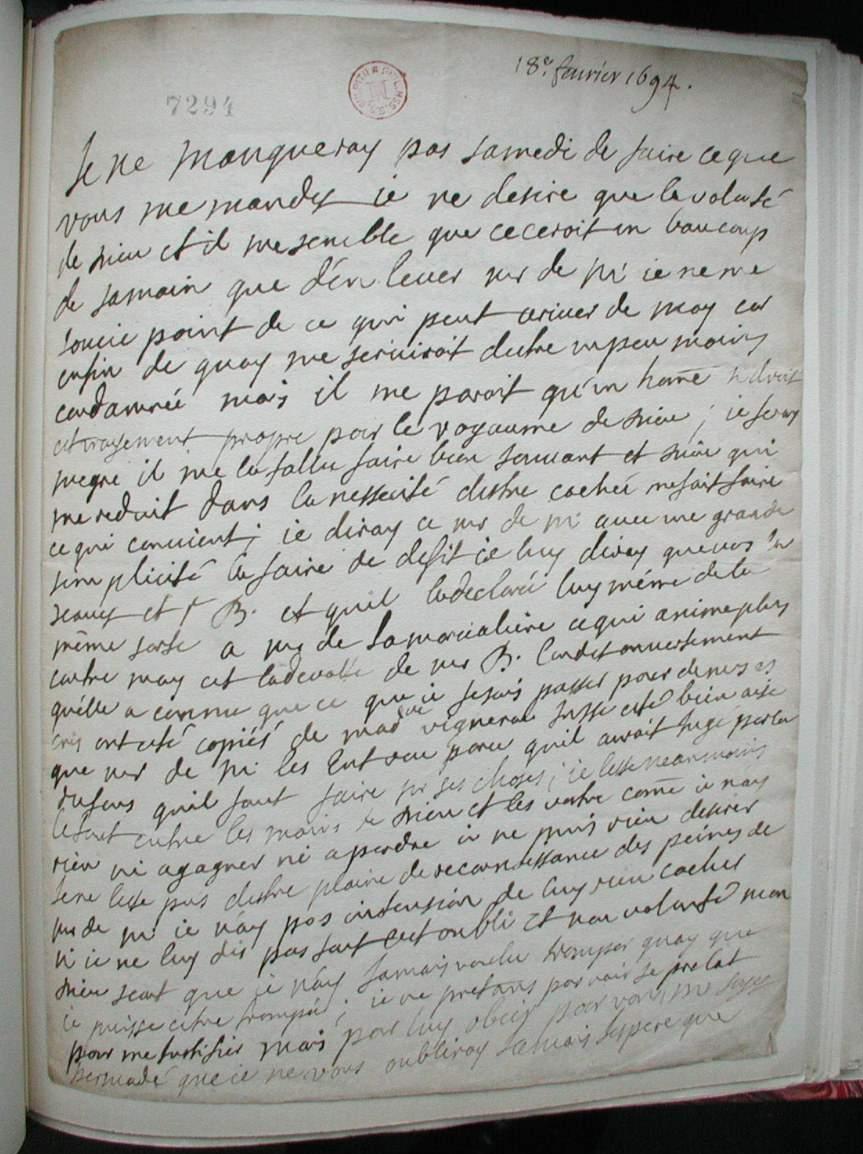 18e fevrier 1694.
7294
Je ne manqueray pas samedi de faire ce que
vous me mandés ie ne desire que la volonté
de dieu et il me semble que ce ceroit un baucoup
de sa main que d'enlever mr de pi ie ne me
soucie point de ce qui peut ariver de moy car
enfin de quoy me serviroit destre un peu moins
condamnée mais il me paroit qu'un home
propre pour le royaume de dieu ; ie
il me la fallu faire bien souvant et dieu qui
me reduit dans la nessesité destre cachée me fait faire
ce qui convient ; ie diray a mr de pi avec une grande
simplicité la faire de ie luy diray que
et B. et quil la declaré luy méme de la
méme sorte a mr de la marvaliere ce qui anime plus
contre moy cet la devote de mr B.
quelle a comme que ce que ie fesois passer pour
ont esté copiés de madlle vigneron iusse esté bien aise
que mr de pi les eut veu parce quil auroit jugé par la
quil faut faire sur ses choses ; ie lesse neanmoins
le tout entre les mains de dieu et les votre come ie nay
rien ni a gagner ni a perdre ie ne puis rien desirer
ie ne lesse pas destre plaine de reconnessance des peines de
mr de pi ie n'ay pas intension de luy rien cacher
si ie ne luy dis pas tout cet oubli et non volonté mon
dieu scait que ie n'ay jamais voulu tromper quoy que
ie puisse estre trompée ; ie ne pretans pas voir se prelat
pour me justifier mais pour luy obeir pour vous
persuadé que ie ne vous oubliray jamais iespere que